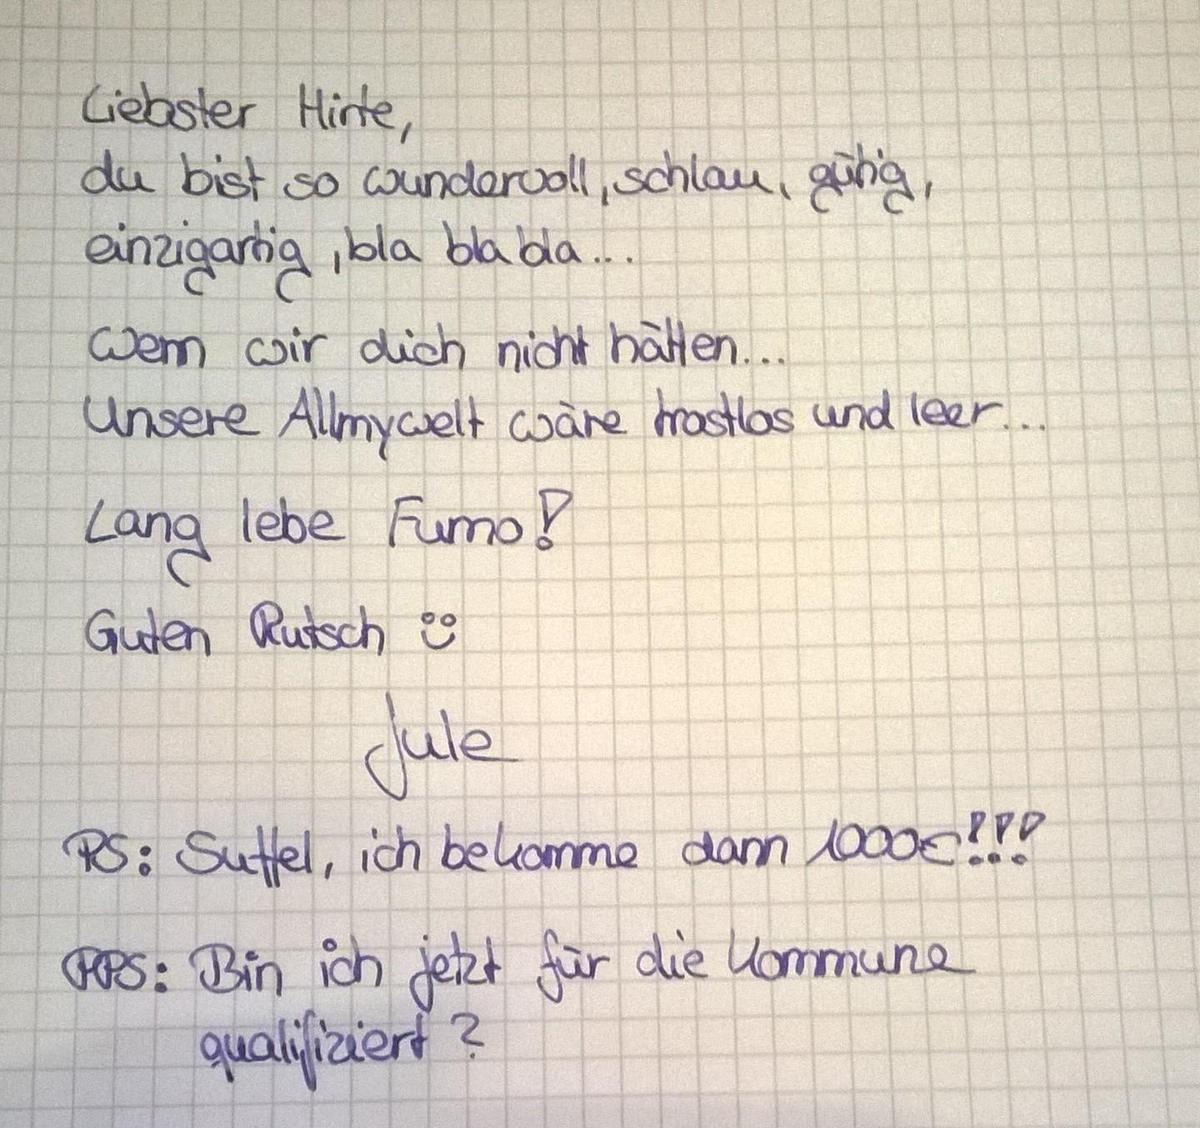 Liebster Hirte,
du bist so wundervoll, schlau, gütig,
einzigartig, bla bla bla...
Wenn wir dich nicht hätten...
Unsere Allmywelt wäre trostlos und leer...
Lang lebe Fumo!
Guten Rutsch ☺
Jule
PS: Suffel, ich bekomme dann 1000€!!!
PPS: Bin ich jetzt für die Kommune
qualifiziert?